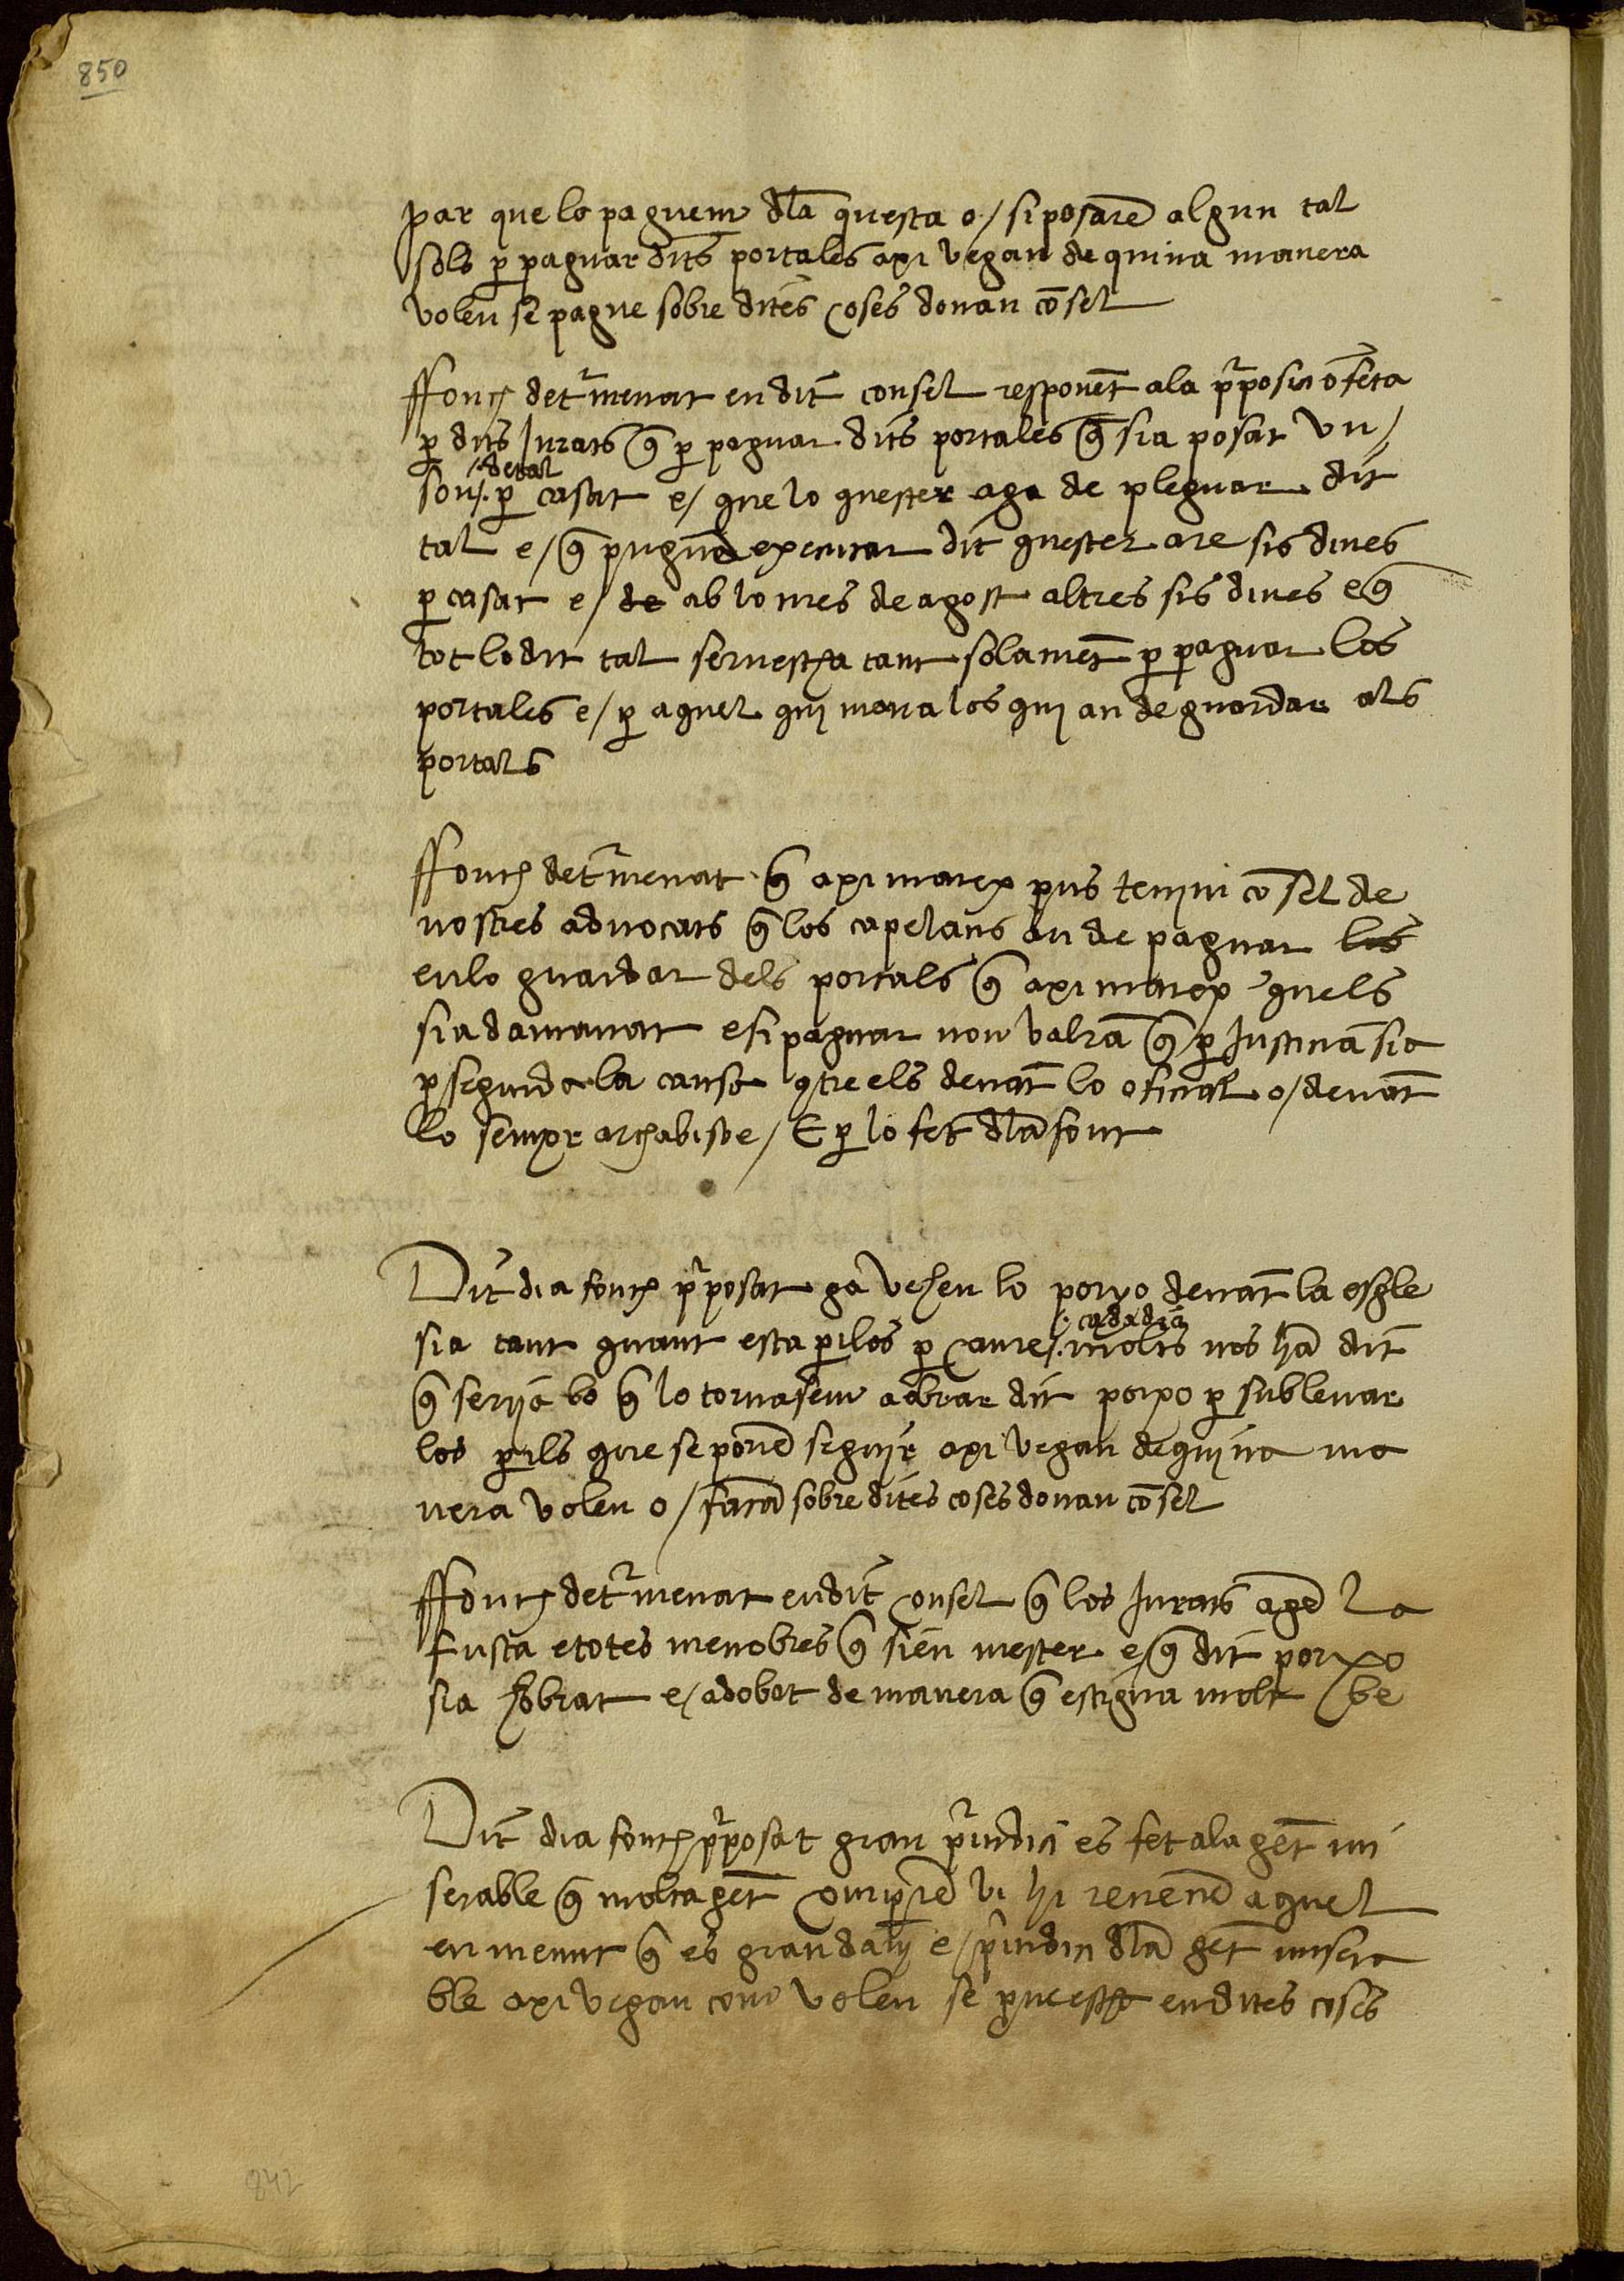 850
par que lo paguem dla questa o/ si posarẽ algun tal
sols p paguar dits portales axi vegan de quina manera
volen se pague sobre dites coses donan cõsel
ffonch detᵉmenat en dit consel responẽt a la pᵒposicio feta
p dits Jurats q̃ p paguar dits portales q̃ sia posat un/
de tal
sou /. p casat e/ que lo quester aga de pleguar dit
tal e/ q̃ pugua executar dit quester are sis dines
p casat e/ de ab lo mes de agost altres sis dines e q̃
tot lo dit tal servescha tant solamẽt p paguar los
portales e/ p aquel qui mana los qui an de guardar als
portals
ffonch detᵉmenat q̃ axi marex pus tenim cõsel de
nostres advocats q̃ los capelans an de paguar los
en lo guardar dels portals q̃ axi marex quels
sia damanat e si paguar non valrã q̃ p Justicia sia
pseguida la causa qtre els denãt lo oficial o/ denãt
lo senyor archabisbe/ E p lo fet dla font
Dit dia fonch pᵒposat ja vehen lo porxo denãt la esgle
cada dia
sia tant quant esta pilos p caure /. molts nos hã dit
q̃ serija bo q̃ lo tornasem a obrar dit porxo p sublevar
los pils que se poriẽ seguir axi vegan de quina ma
nera volen o/ facã sobre dites coses donan cõsel
ffonch detᵉmenat en dit consel q̃ los Jurats agẽ la
fusta e totes menobres q̃ sien mester e/ q̃ dit porxo
sia hobrat e/ adobat de manera q̃ estigua molt be
Dit dia fonch pᵒposat gran pᵉiudici es fet a la gẽt mi
serable q̃ molta gẽt comprẽ vi hi revenẽ aquel
en menut q̃ es gran dany e/ pᵉiudici dla gẽt misera
ble axi vegan com volen se pvehesca en dites coses
842